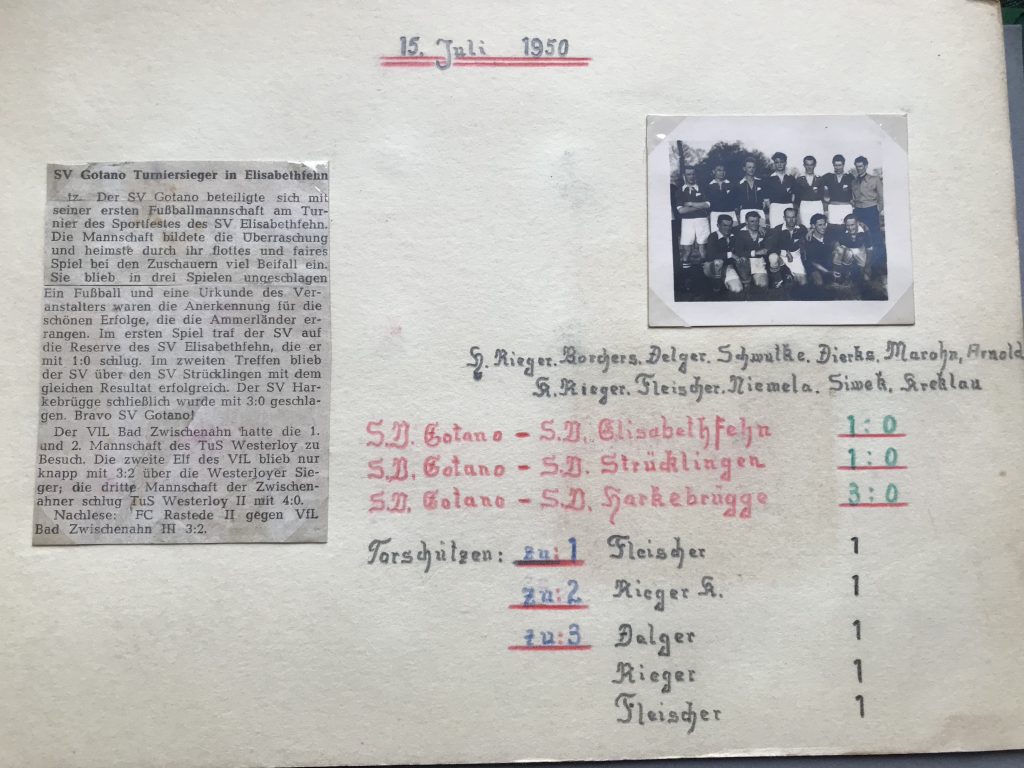 15. Juli 1950
SV Gotano Turniersieger in Elisabethfehn
tz. Der SV Gotano beteiligte sich mit
seiner ersten Fußballmannschaft am Tur-
nier des Sportfestes des SV Elisabethfehn.
Die Mannschaft bildete die Überraschung
und heimste durch ihr flottes und faires
Spiel bei den Zuschauern viel Beifall ein.
Sie blieb in drei Spielen ungeschlagen
Ein Fußball und eine Urkunde des Ver-
anstalters waren die Anerkennung für die
schönen Erfolge, die die Ammerländer er-
rangen. Im ersten Spiel traf der SV auf
die Reserve des SV Elisabethfehn, die er
mit 1:0 schlug. Im zweiten Treffen blieb
der SV über den SV Strücklingen mit dem
gleichen Resultat erfolgreich. Der SV Har-
kebrügge schließlich wurde mit 3:0 geschla-
gen. Bravo SV Gotano!
Der VfL Bad Zwischenahn hatte die 1.
und 2. Mannschaft des TuS Westerloy zu
Besuch. Die zweite Elf des VfL blieb nur
knapp mit 3:2 über die Westerloyer Sie-
ger; die dritte Mannschaft der Zwischen-
ahner schlug TuS Westerloy II mit 4:0.
Nachlese: FC Rastede II gegen VfL
Bad Zwischenahn III 3:2.
H. Rieger. Borchers. Delger. Schwutke. Dierks. Marohn, Arnold
K. Rieger. Fleischer. Niemela. Siwek, Kreklau
S.V. Gotano - S.V. Elisabethfehn 1:0
S.V. Gotano - S.V. Strücklingen 1:0
S.V. Gotano - S.V. Harkebrügge 3:0
Torschützen: zu: 1 Fleischer 1
zu: 2 Rieger K. 1
zu: 3 Delger 1
Rieger 1
Fleischer 1